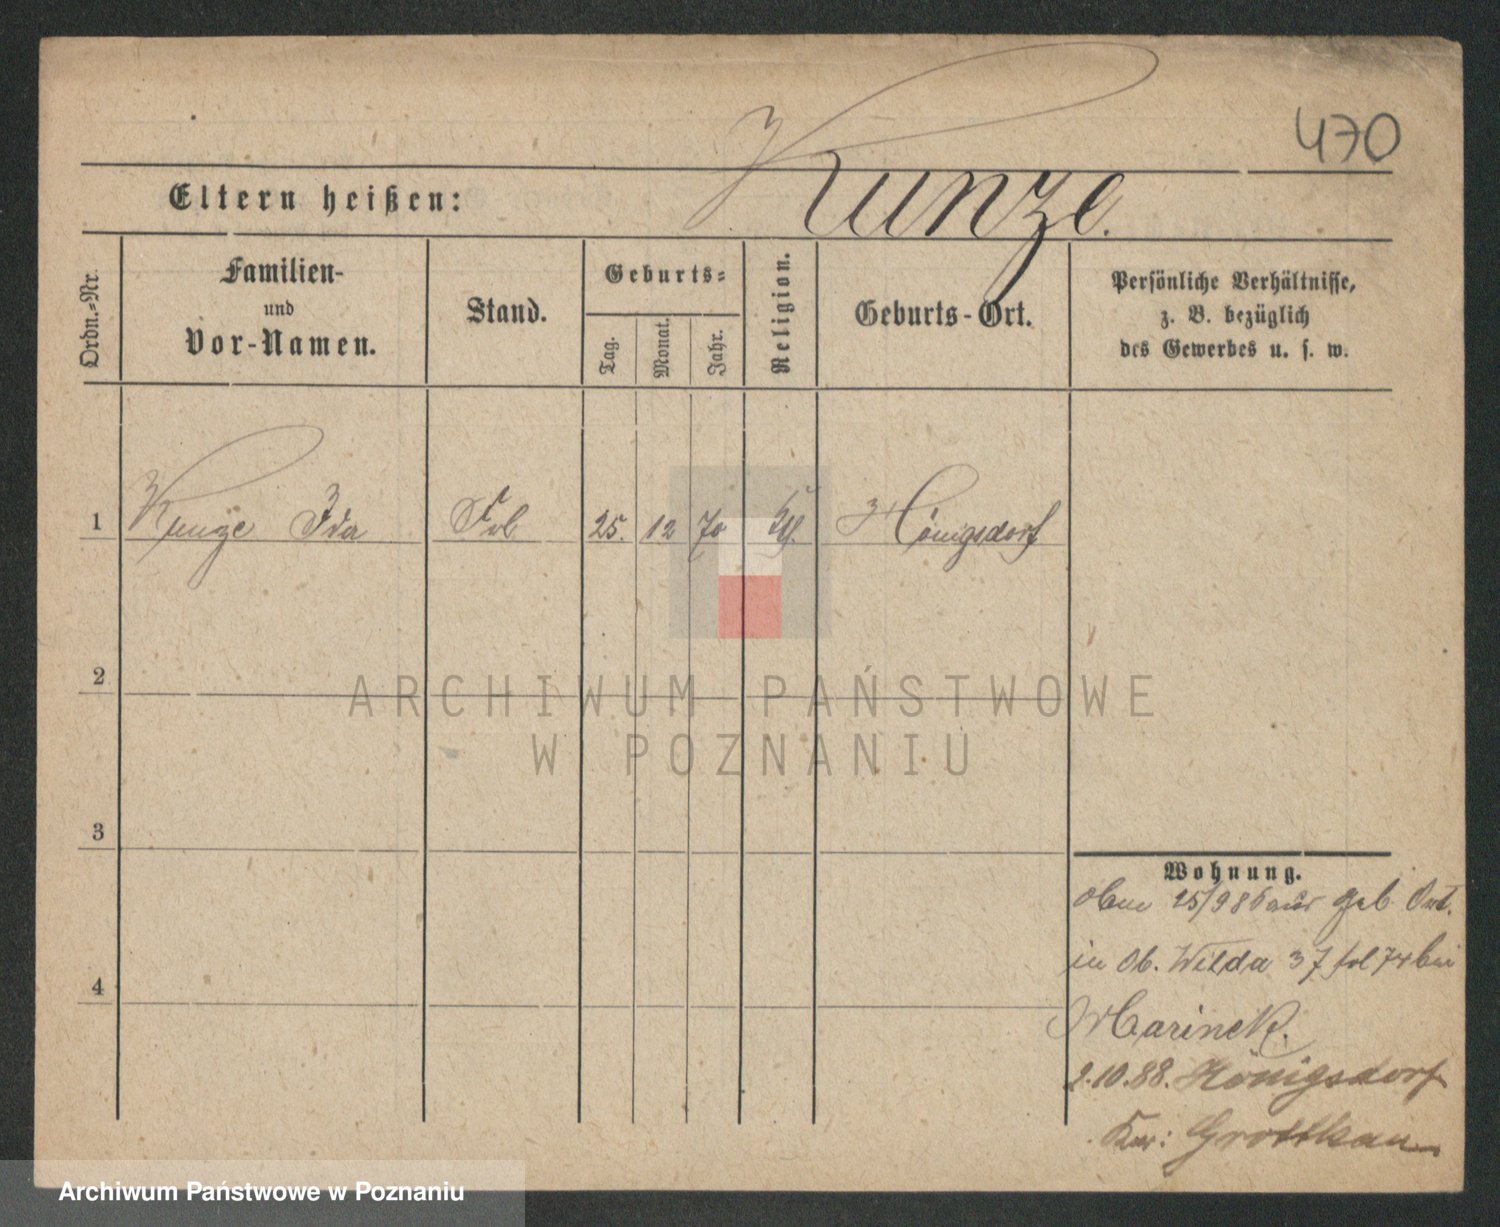 470
Kunze.
Eltern heißen:
Ordn.-Nr.
Familien-
und
Vor-Namen.
Stand.
Geburts-
Tag.
Monat.
Jahr.
Religion.
Geburts-Ort.
Persönliche Verhältnisse,
z. B. bezüglich
des Gewerbes u. s. w.
1 Kunze Ida 25. 12 70 Königsdorf
2
3
4
Wohnung.
25/9 86 aus Geb Ort.
in Ob. Wilda 37 bei
Marinek.
2.10.88. Königsdorf
Kr: Grottkau
ARCHIWUM PAŃSTWOWE
W POZNANIU
Archiwum Państwowe w Poznaniu